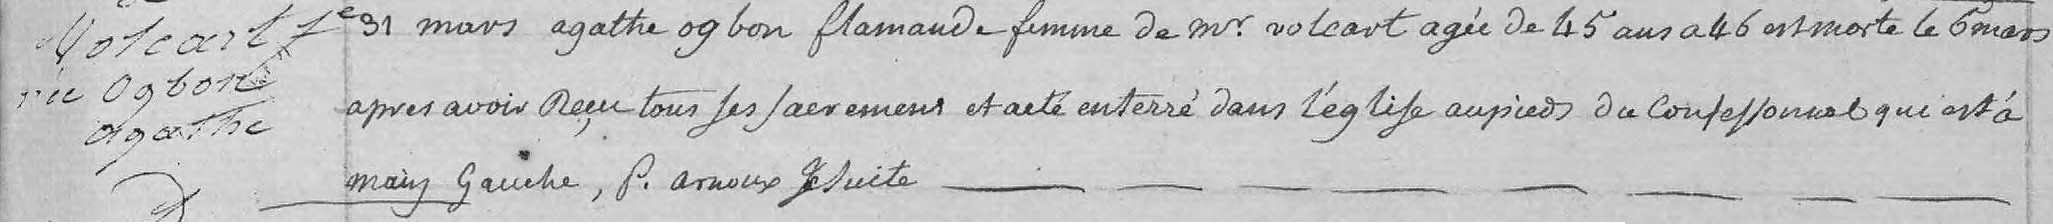 Volcart fe
née Ogbon
agathe
31 mars agathe ogbon flamande femme de mr. volcart agée de 45 ans a 46 est morte le 6 mars
apres avoir Reçu tous ses sacremens et aeté enterré dans l'église aupieds du Confessonnal qui est à
main Gauche, P. arnoux Jesuite